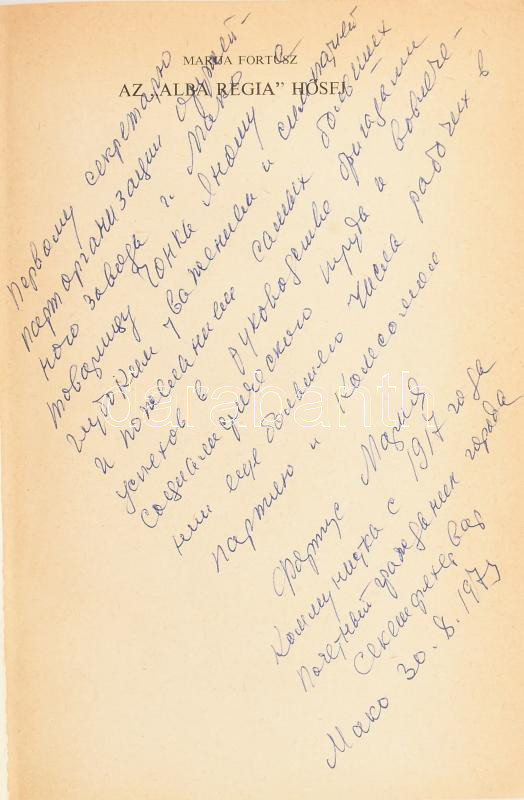 MARIJA FORTUSZ
AZ „ALBA REGIA” HŐSEI
Первому секретарю
парторганизации оружей-
ного завода г. Мако
товарищу Чонка Яношу с
глубоким уважением и симпатией
и пожеланием самых больших
успехов в руководстве бригадами
социалистического труда и вовлече-
нии еще большего числа рабочих в
партию и Комсомол
Фортус Мария
Коммунистка с 1917 года
Почетный гражданин города
Секешфехервар
Мако 30.8.1973
darabanth